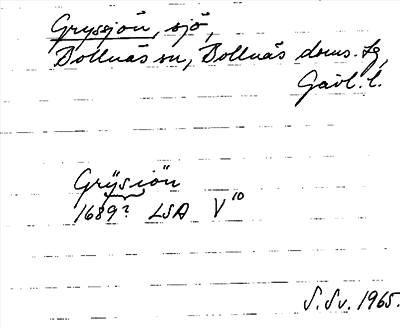 Gryssjön, sjö,
Bollnäs sn, Bollnäs doms. tg,
Gävl. l.
Grÿsiön
1689? LSA V¹⁰
S.Sv. 1965.